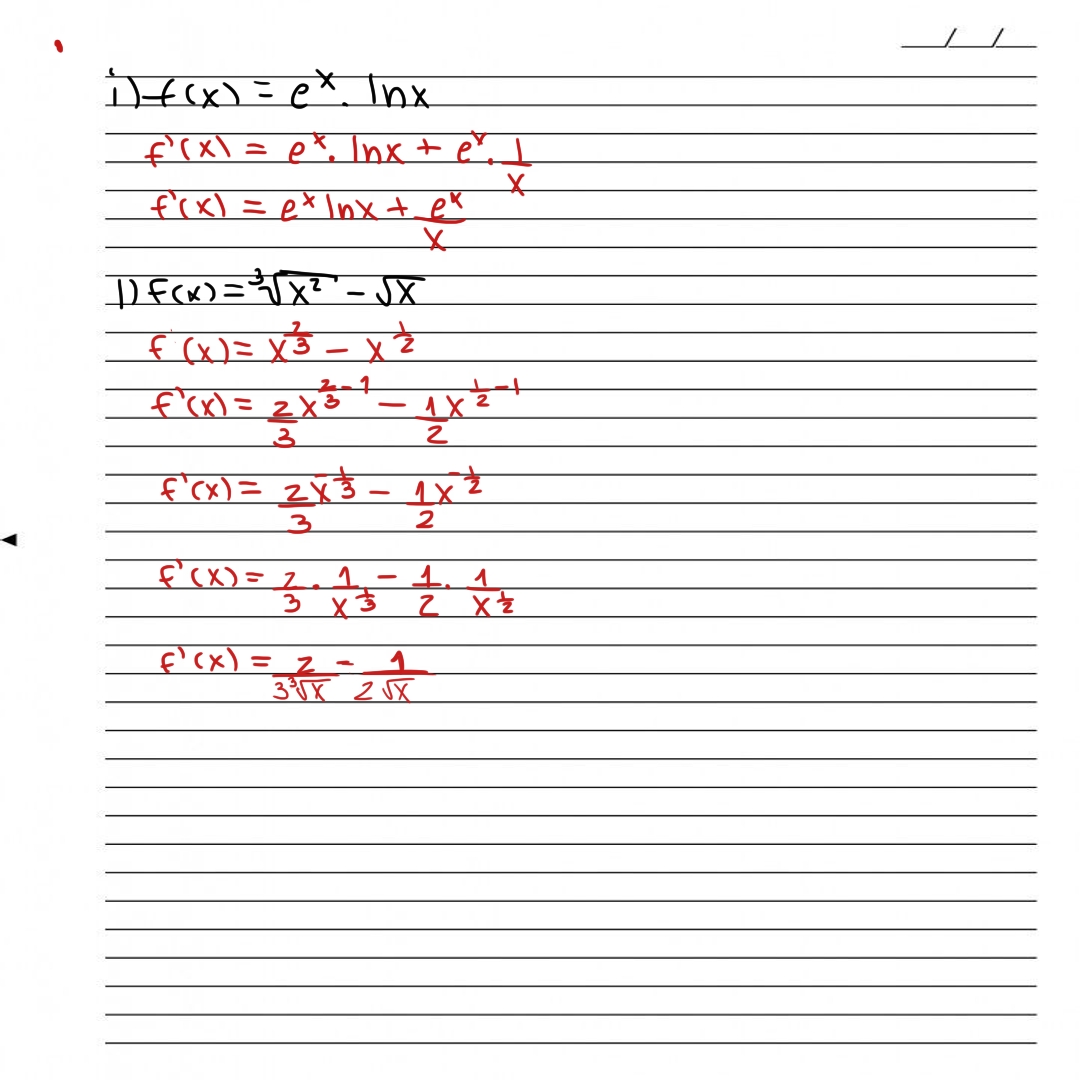 __/__/__
i) f(x) = eˣ. lnx
f'(x) = eˣ. lnx + eˣ. 1/x
f'(x) = eˣ lnx + eˣ/x
l) f(x) = ∛x² - √x
f'(x) = x^(2/3) - x^(1/2)
f'(x) = 2/3 x^(2/3 - 1) - 1/2 x^(1/2 - 1)
f'(x) = 2/3 x^(-1/3) - 1/2 x^(-1/2)
f'(x) = 2/3 . 1/x^(1/3) - 1/2 . 1/x^(1/2)
f'(x) = 2/(3∛x) - 1/(2√x)